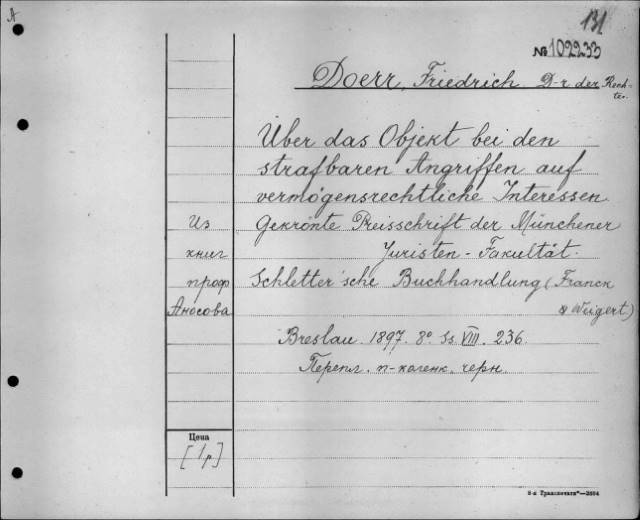 A
131
№ 102233
Doerr, Friedrich D-r der Rech-
te.
Über das Objekt bei den
strafbaren Angriffen auf
vermögensrechtliche Interessen
Gekrönte Preisschrift der Münchener
Juristen-Fakultät.
Schletter'sche Buchhandlung (Franck
& Weigert)
Из
книг
проф
Аносова
Breslau. 1897. 8° Ss. VIII. 236.
Перепл. п-коленк. черн.
Цена
[1 р]